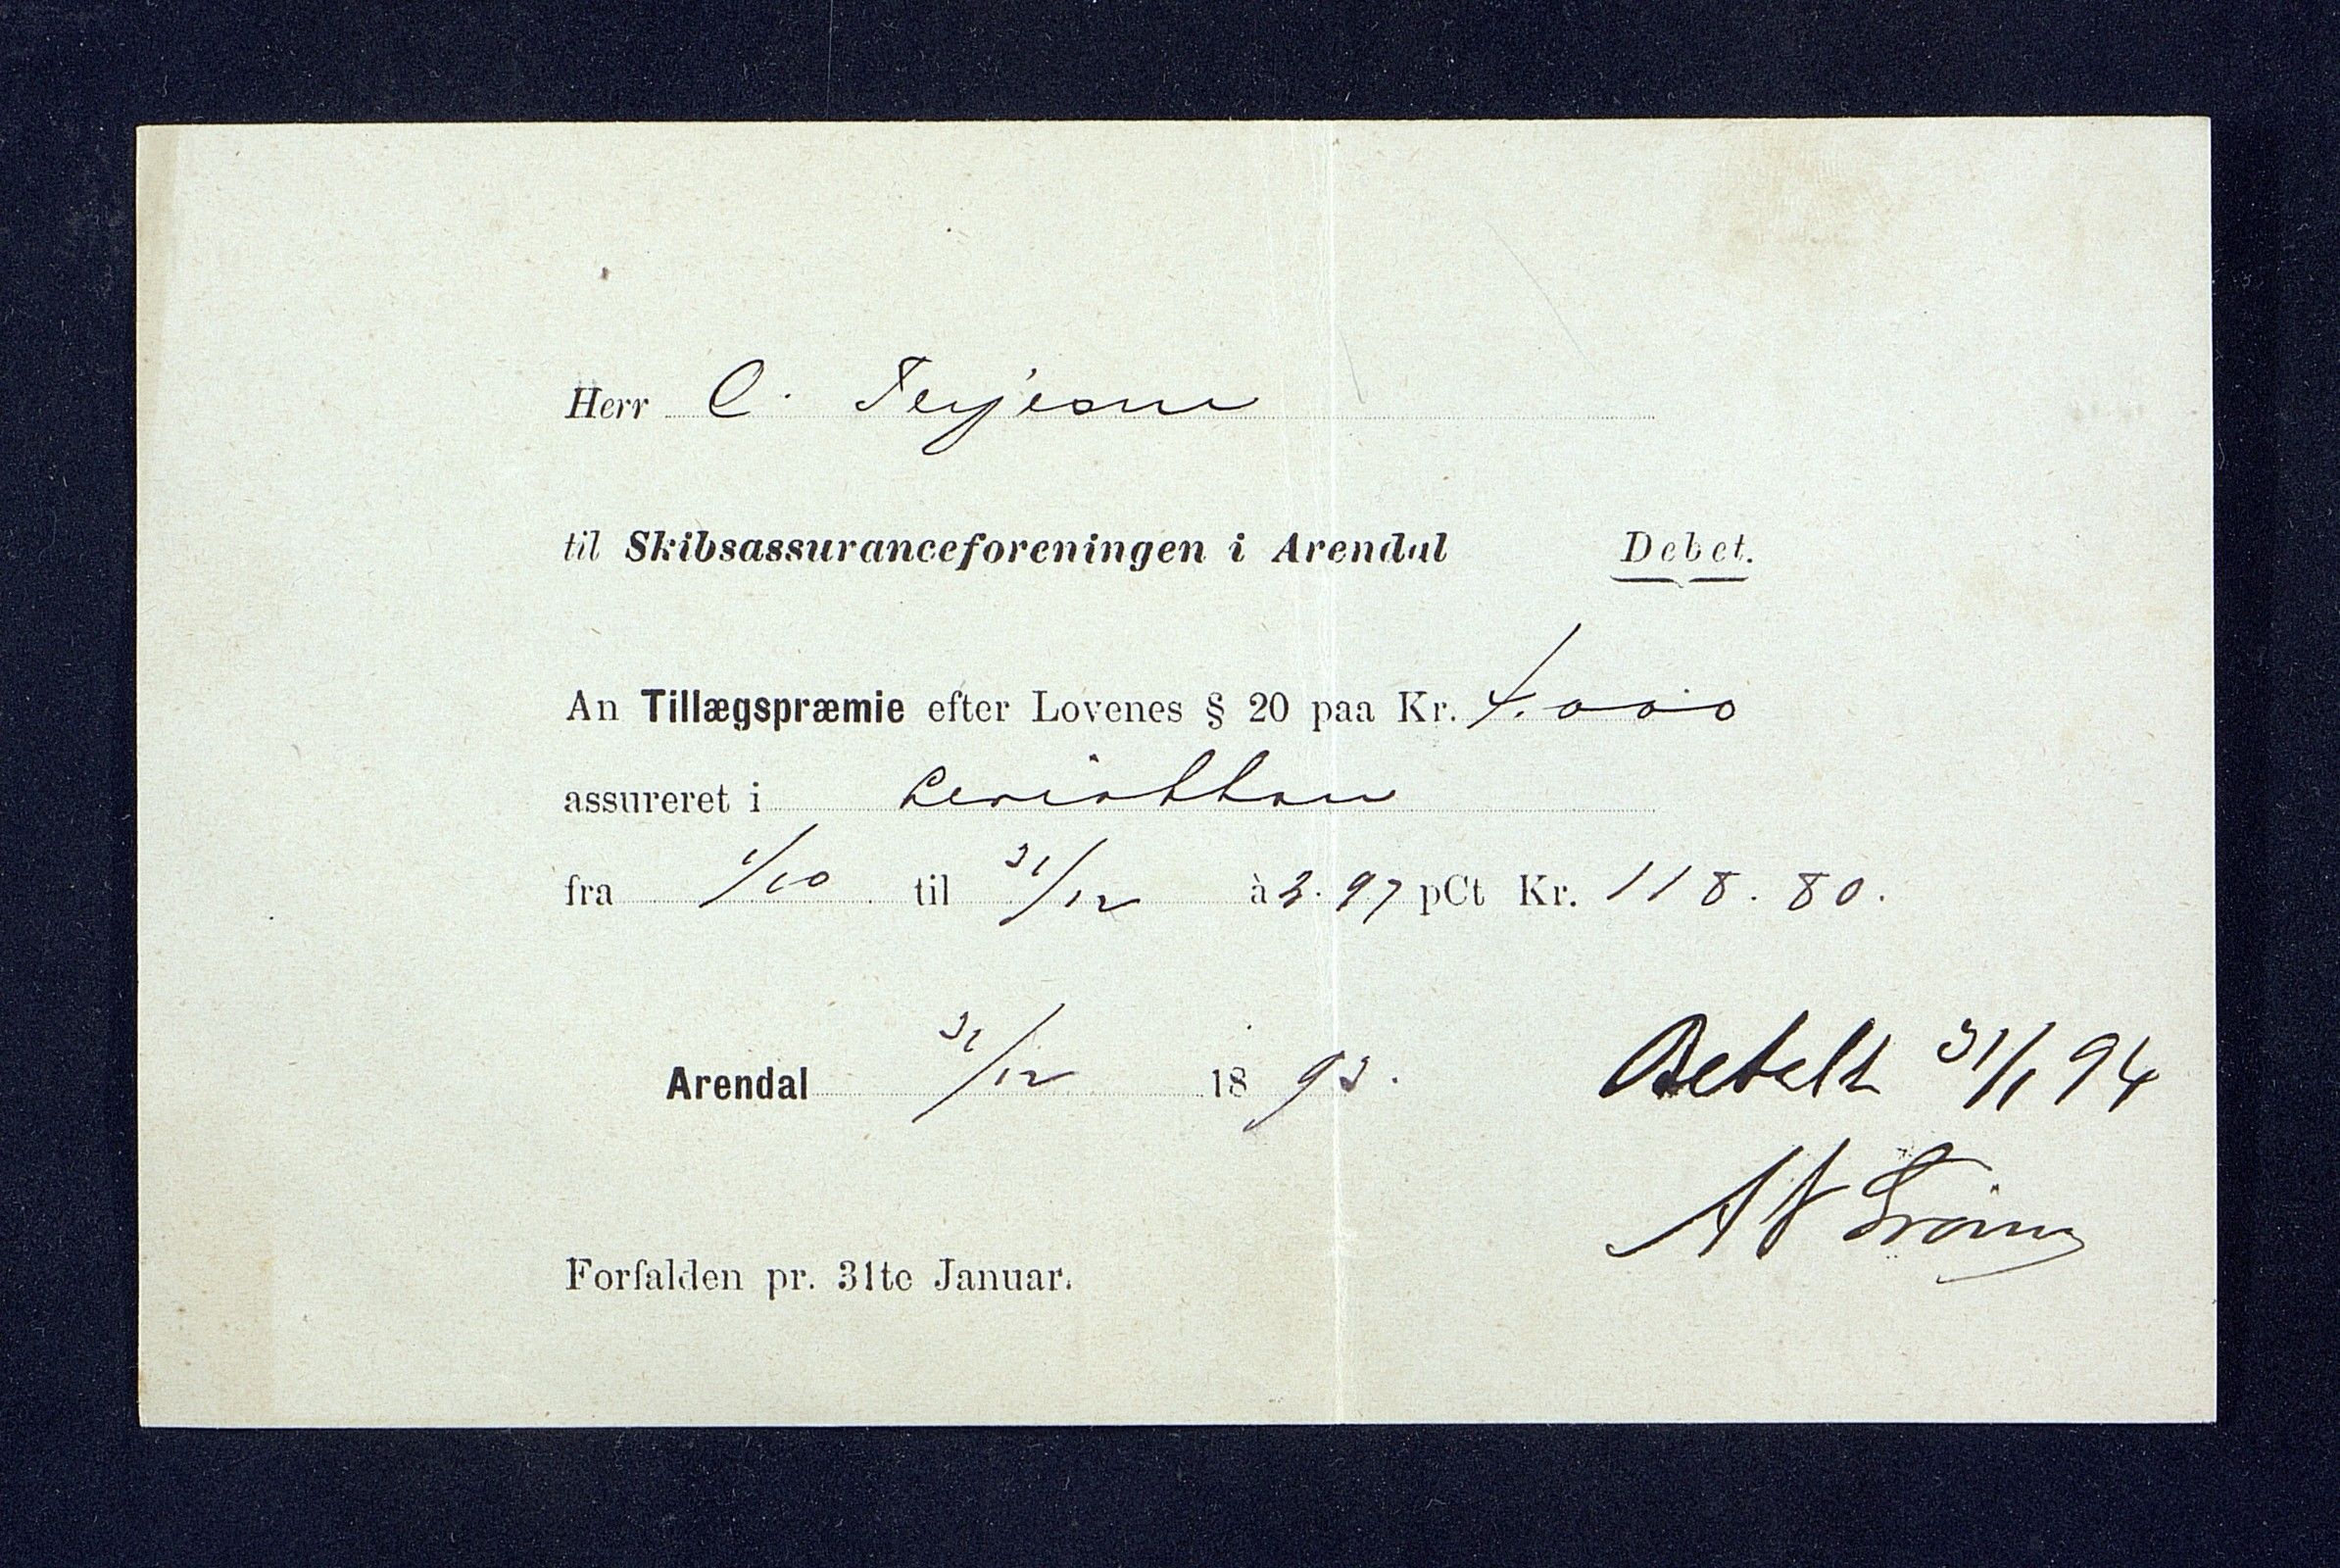 Herr C. Terjesen
til Skibsassuranceforeningen i Arendal Debet.
An Tillægspræmie efter Lovenes § 20 paa Kr. 4.000
assureret i Leviathan
fra 1/10 til 31/12 à 2.97 pCt Kr. 118.80.
Arendal 31/12 1893.
Betalt 31/1 94
Forfalden pr. 31te Januar.